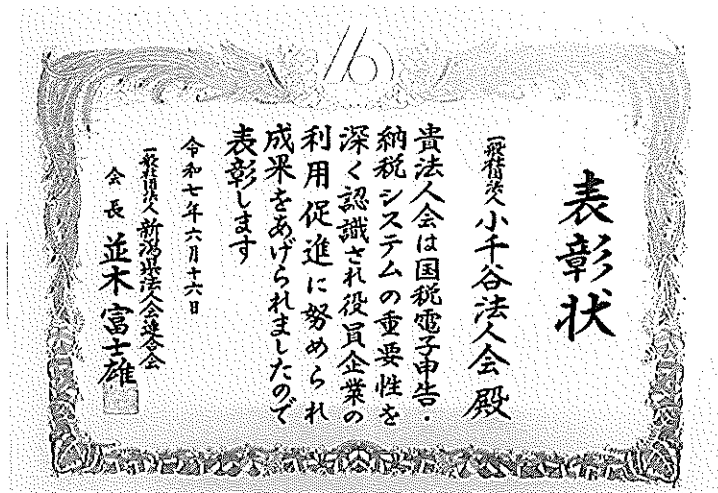 表彰状
一般社団法人 小千谷法人会 殿
貴法人会は国税電子申告・
納税システムの重要性を
深く認識され役員企業の
利用促進に努められ
成果をあげられましたので
表彰します
令和七年六月十六日
一般社団法人 新潟県法人会連合会
会長 並木富士雄